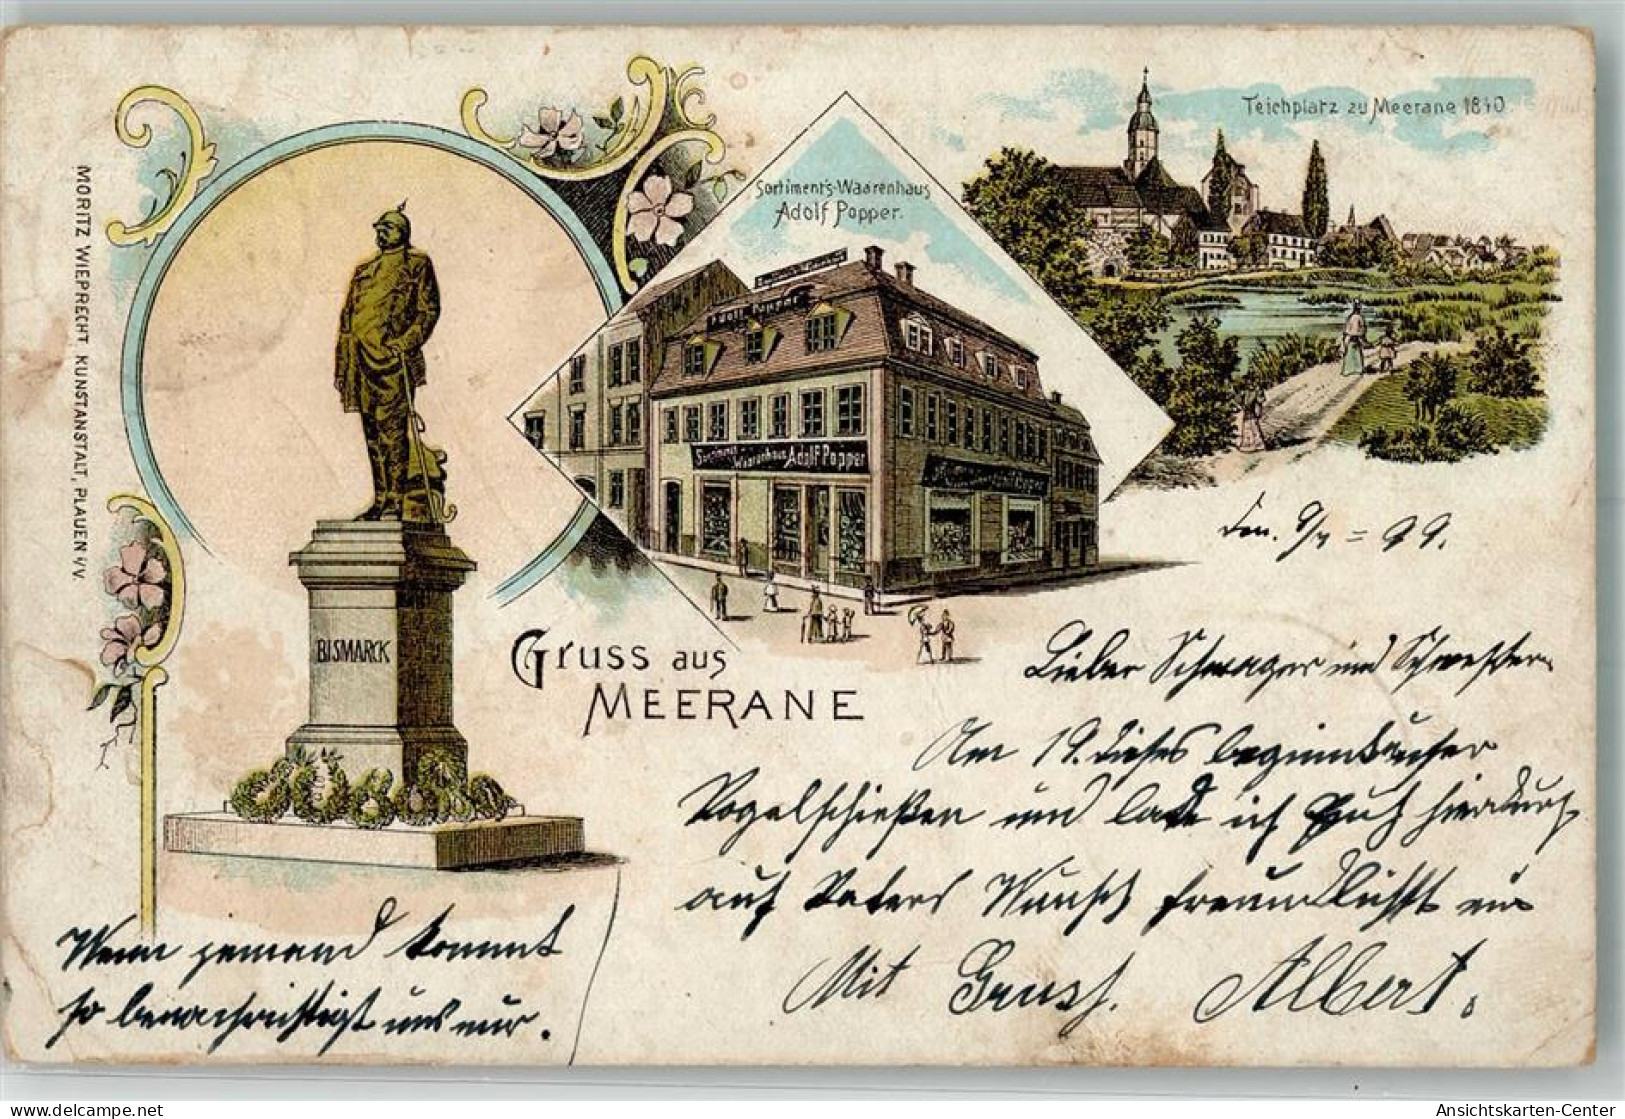 Teichplatz zu Meerane 1840
Sortiment's-Waarenhaus
Adolf Popper.
Adolf Popper
Sortiment Waarenhaus Adolf Popper
MORITZ WIEPRECHT KUNSTANSTALT, PLAUEN i/V.
BISMARCK
Gruss aus
MEERANE
den. 9/7 = 99.
Lieber Schwager und Schwester
Am 19. dieses beginnt unser
Vogelschießen und lade ich Euch hierdurch
auf Vaters Wunsch freundlichst ein
Mit Gruss. Albert.
Wenn jemand kommt
so benachrichtigt uns nur.
Ansichtskarten-Center